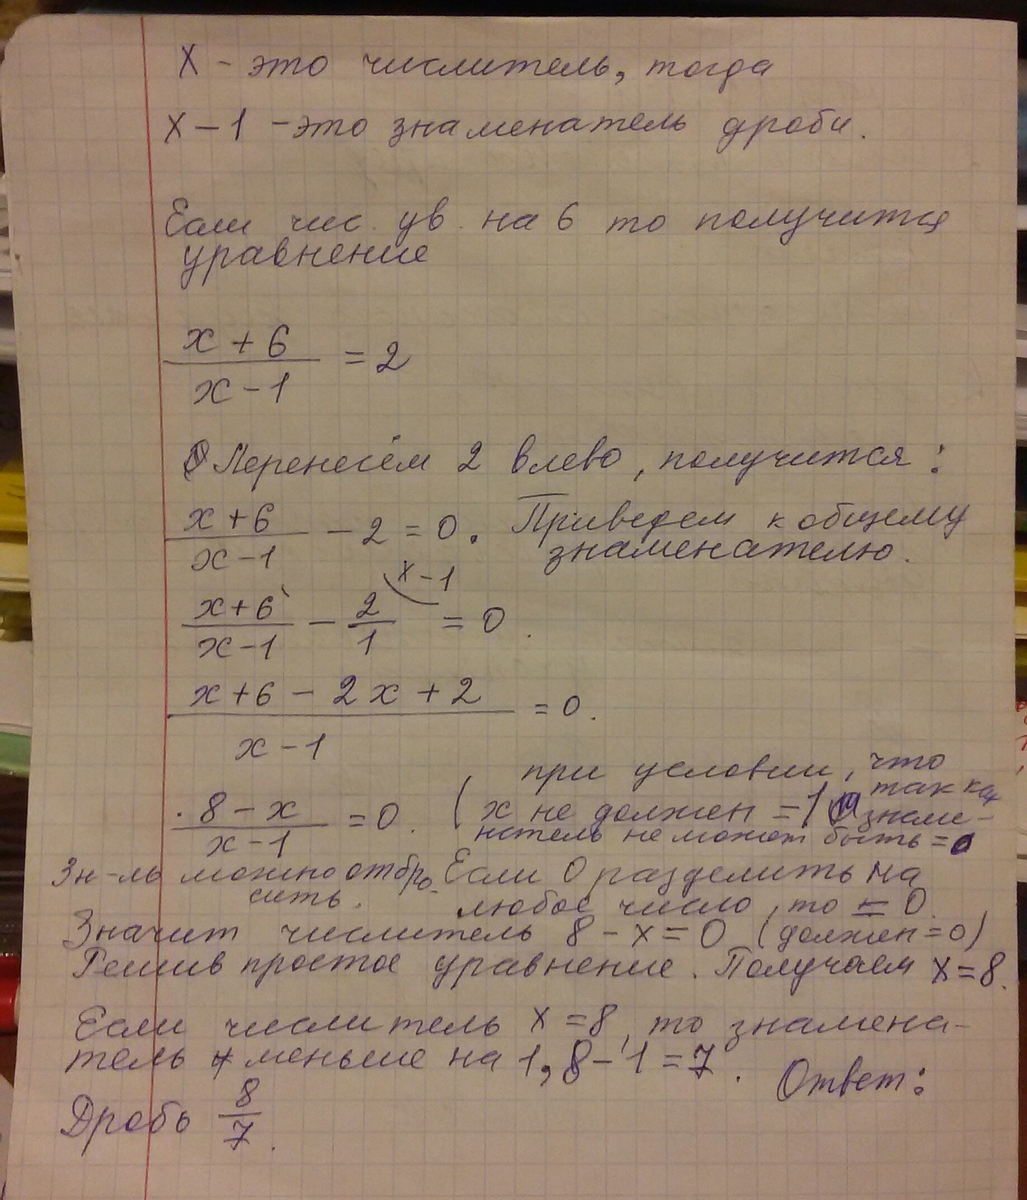 x - это числитель, тогда
x - 1 - это знаменатель дроби.
Если чис. ув. на 6 то получится
уравнение
x + 6
x - 1
= 2
Перенесём 2 влево, получится:
x + 6
x - 1
- 2 = 0. Приведем к общему
знаменателю.
x - 1
x + 6
x - 1
- 2
1
= 0.
x + 6 - 2x + 2
x - 1
= 0.
при условии, что
8 - x
x - 1
= 0. (x не должен = 1 так как
знаме-
натель не может быть = 0
Зн-ль можно отбро-
сить. Если 0 разделить на
любое число, то = 0.
Значит числитель 8 - x = 0 (должен = 0)
Решив простое уравнение. Получаем x = 8.
Если числитель x = 8, то знамена-
тель меньше на 1, 8 - 1 = 7. Ответ:
Дробь 8
7.